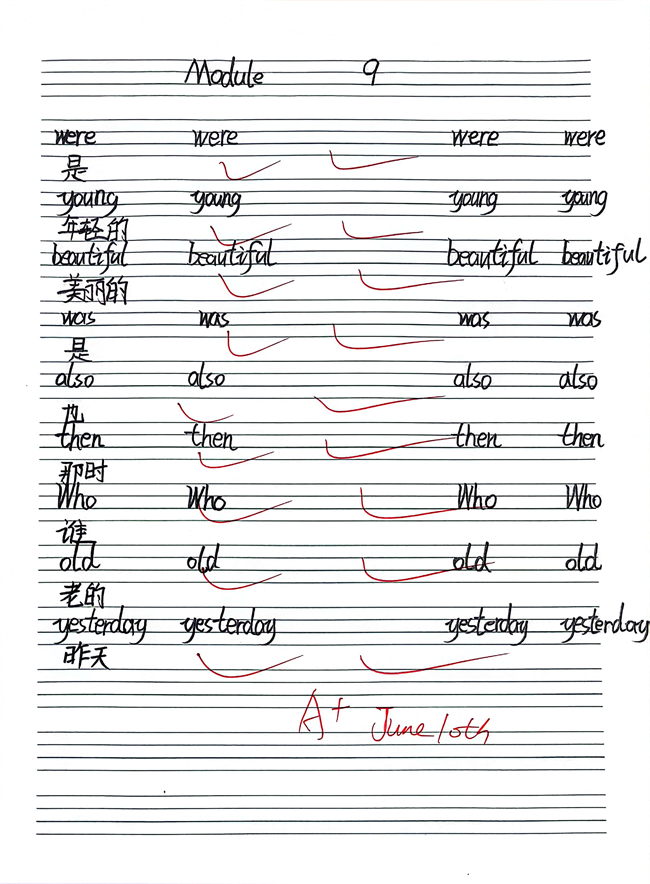 Module 9
were were were were
是
young young young young
年轻的
beautiful beautiful beautiful beautiful
美丽的
was was was was
是
also also also also
也
then then then then
那时
Who Who Who Who
谁
old old old old
老的
yesterday yesterday yesterday yesterday
昨天
A+ June 10th